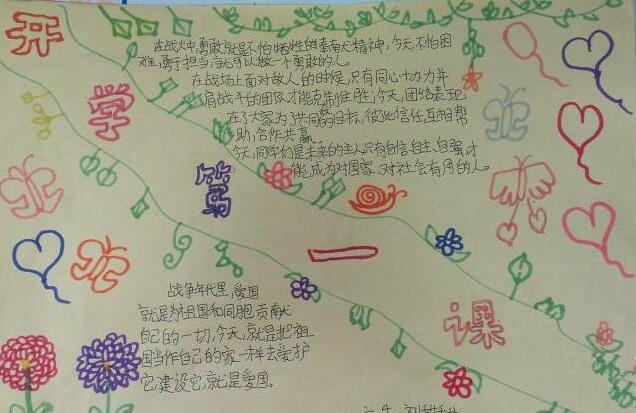 开
学
第
一
课
在战火中,勇敢就是不怕牺牲的奉献大精神,今天,不怕困
难,勇于担当,就可以做一个勇敢的人。
在战场上面对敌人的时候,只有同心协力并
肩战斗的团队才能克制住胜,今天,团结表现
在了大家为了共同的目标,彼此信任,互相帮
助,合作共赢。
今天,同学们是未来的主人,只有自信、自主、自强才
能成为对国家、对社会有用的人。
战争年代里,爱国
就是为祖国和同胞贡献
自己的一切,今天,就是把祖
国当作自己的家一样去爱护
它,建设它,就是爱国。